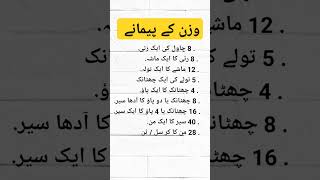 وزن کے پیمانے
. 8 چاول کی ایک رتی.
. 8 رتی کا ایک ماشہ.
. 12 ماشے کا ایک تولہ.
. 5 تولے کی ایک چھٹانک
. 4 چھٹانک کا ایک پاؤ.
. 8 چھٹانک یا دو پاؤ کا آدھا سیر.
. 16 چھٹانک یا 4 پاؤ کا ایک سیر.
. 40 سیر کا ایک من.
. 28 من کا کر سل / ٹن
12 ماشے
5 تولے کی
4 چھٹانک
8 چھٹانک
کا آدھا سیر.
16 چھٹانک